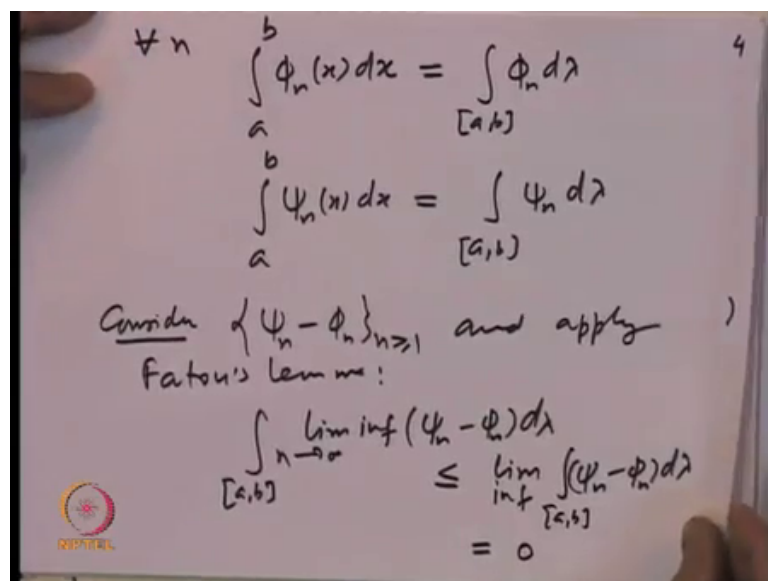 4
∀ n ∫_a^b ϕ_n(x) dx = ∫_{[a,b]} ϕ_n dλ
∫_a^b ψ_n(x) dx = ∫_{[a,b]} ψ_n dλ
Consider {ψ_n − ϕ_n}_{n≥1} and apply
Fatou's lemma:
∫_{[a,b]} lim inf_{n→∞} (ψ_n − ϕ_n) dλ
≤ lim inf ∫_{[a,b]} (ψ_n − ϕ_n) dλ
= 0
NPTEL